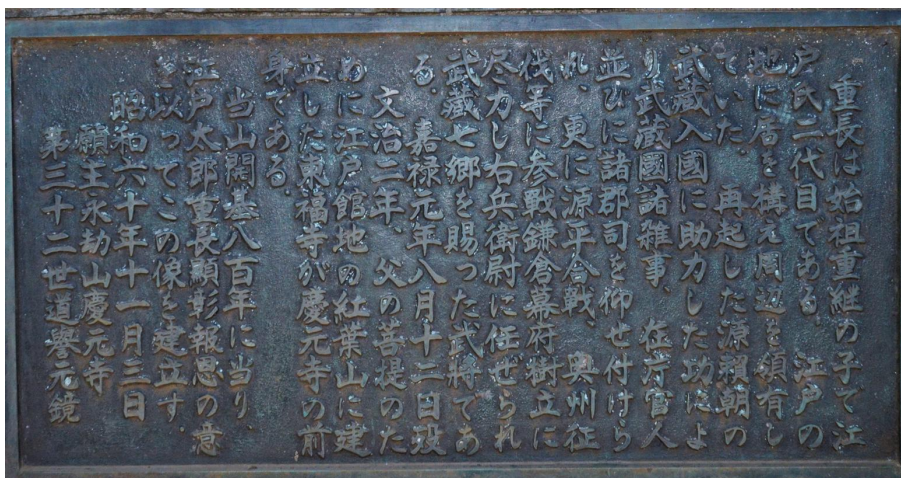 重長は始祖重継の子で江
戸氏二代目である。江戸の
地に居を構え周辺を領有し
ていた。再起した源頼朝の
武蔵入國に助力した功によ
り武蔵國諸雑事、在庁官人
並びに諸郡司を仰せ付けら
れ、更に源平合戦、奥州征
伐等に参戦鎌倉幕府樹立に
尽力し右兵衛尉に任ぜられ
武蔵七郷を賜った武将であ
る。嘉禄元年八月十二日歿
文治二年、父の菩提のた
めに江戸館地内紅葉山に建
立した東福寺が慶元寺の前
身である。
当山開基八百年に当り
江戸太郎重長顕彰報恩の意
を以ってこの像を建立す
昭和六十年十一月三日
願主永劫山慶元寺
第三十二世道誉元鏡